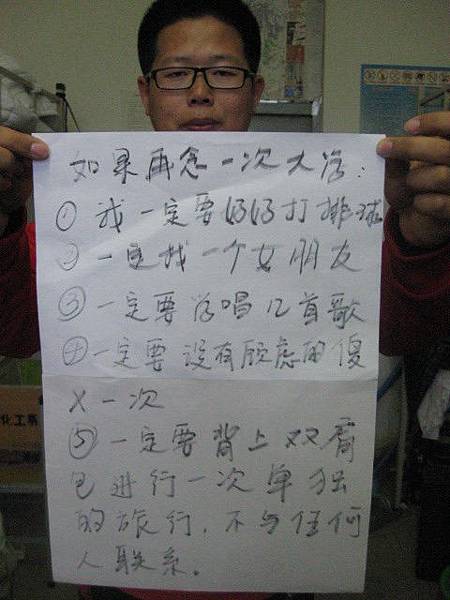 如果再念一次大学:
①我一定要好好打排球
②一定找一个女朋友
③一定要学唱几首歌
④一定要没有顾虑的傻
X一次
⑤一定要背上双肩
包进行一次单独
的旅行,不与任何
人联系。
化工系